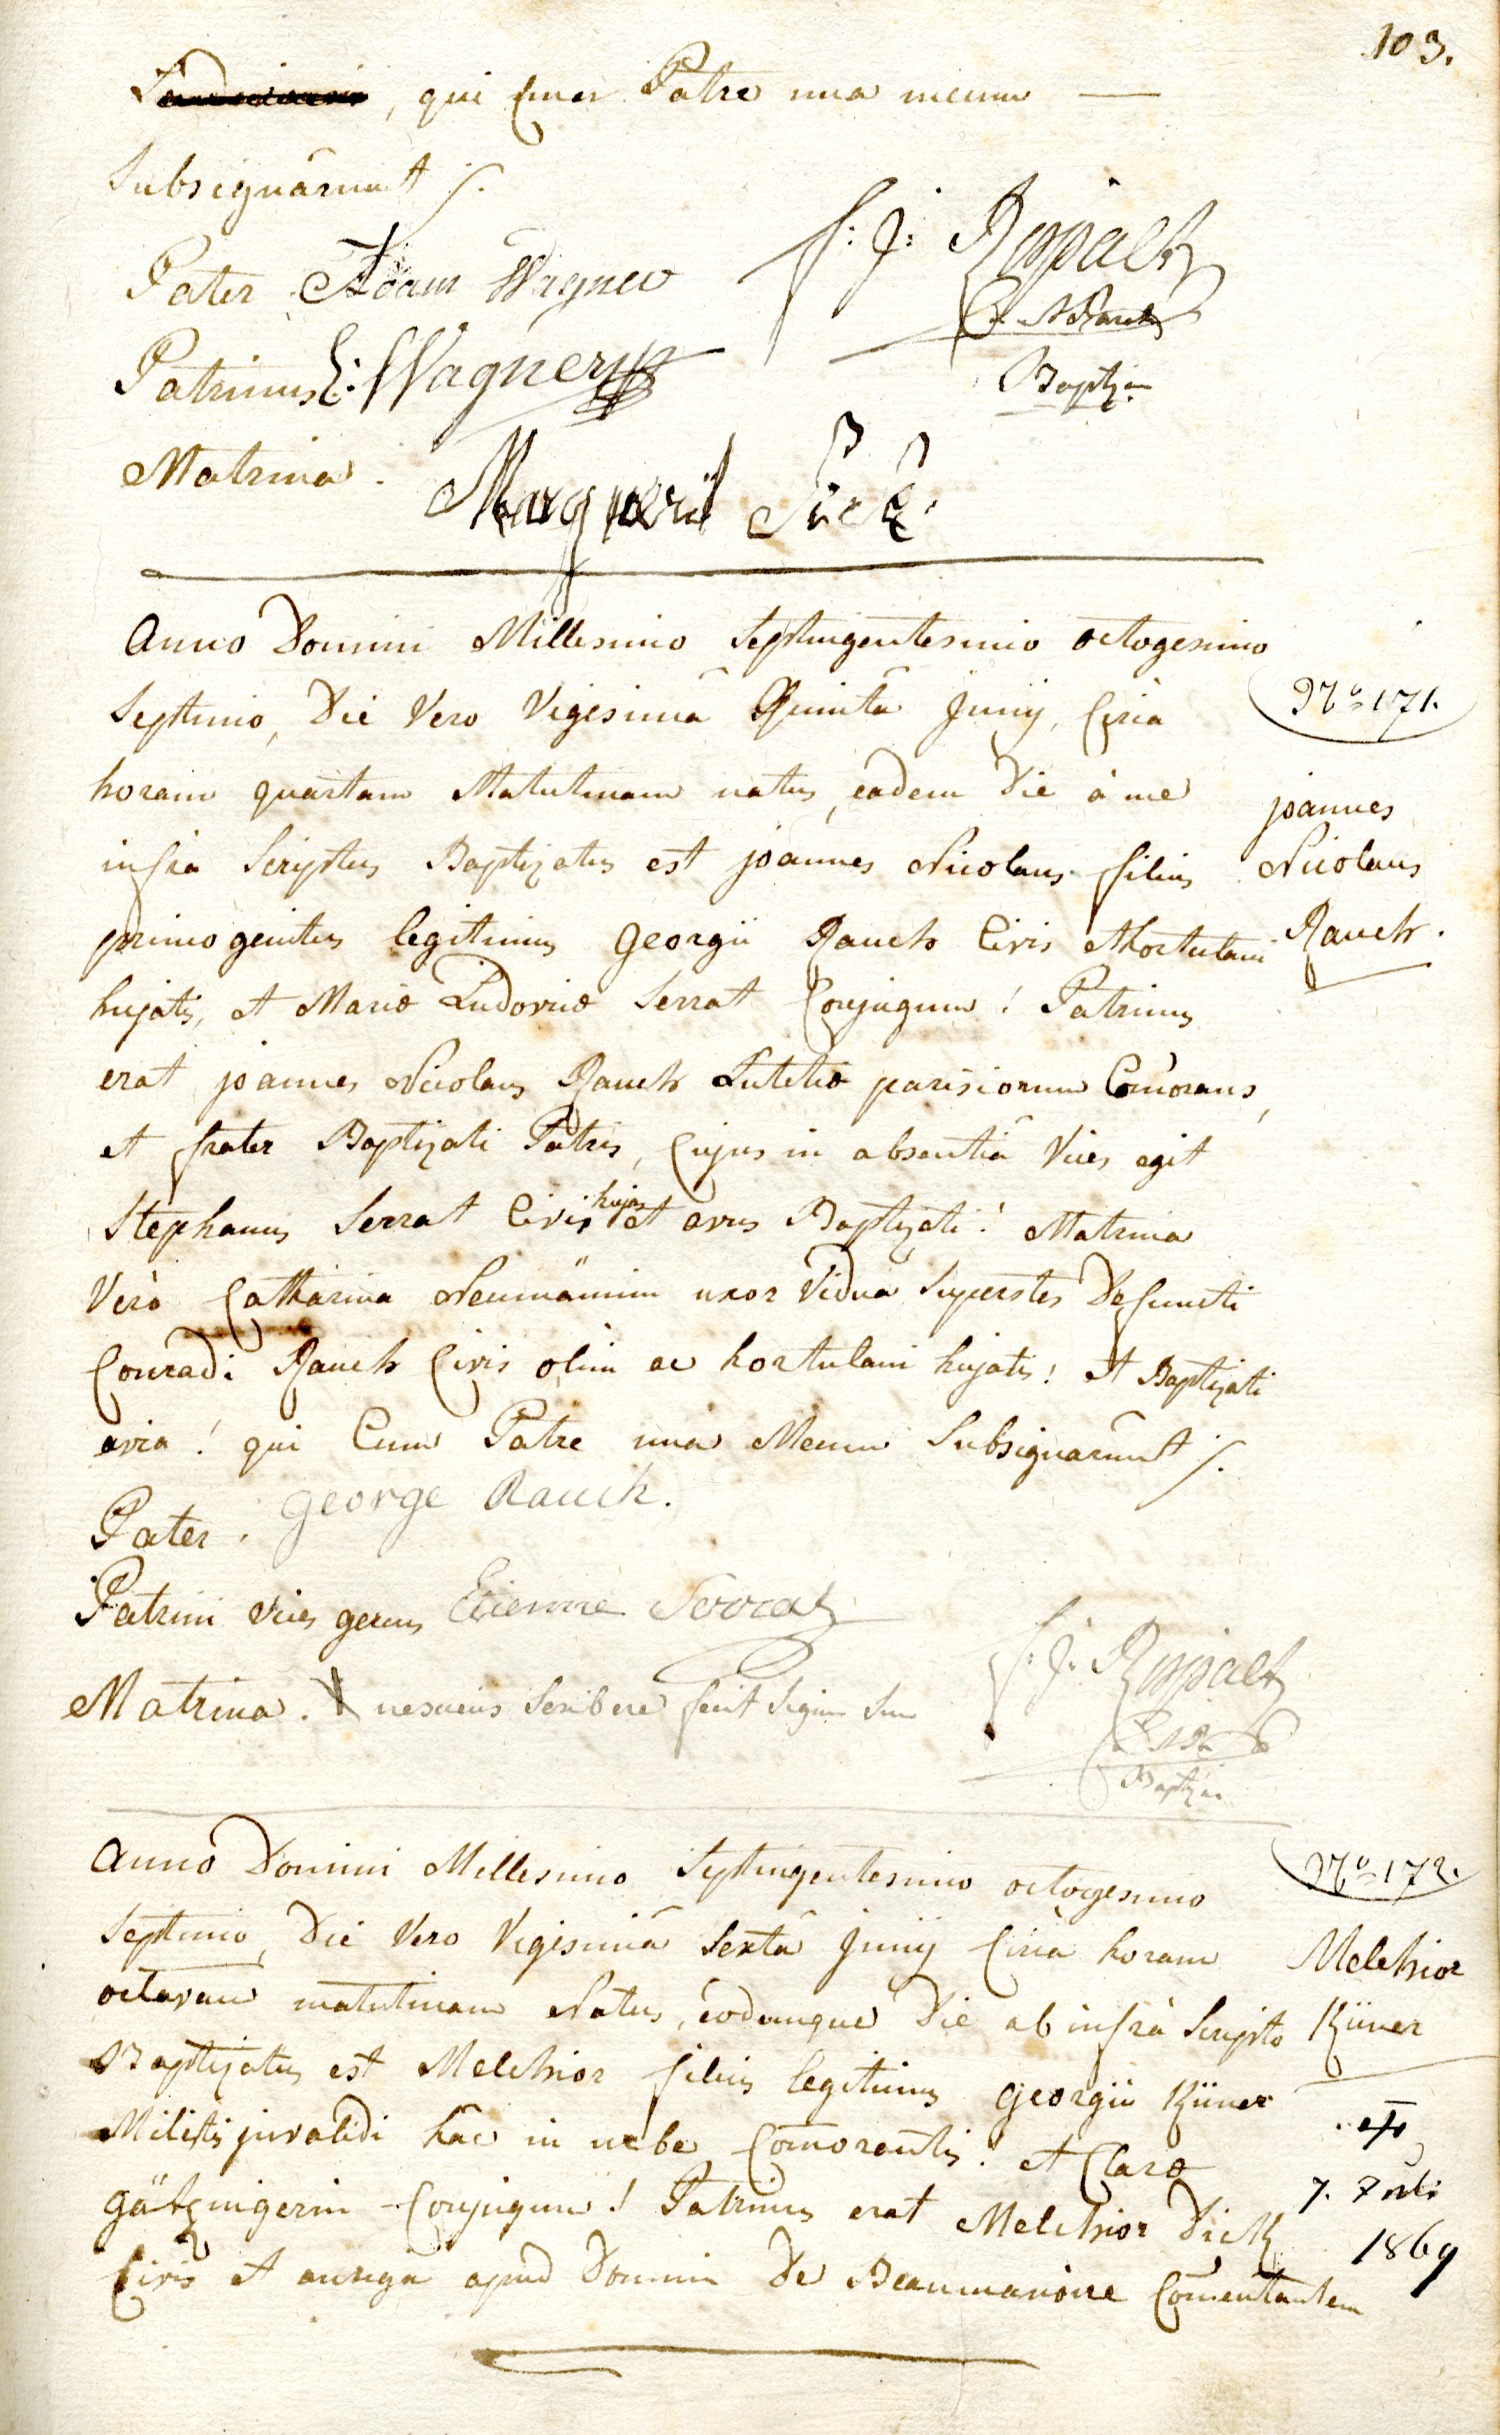 103.
, qui Cum Patre una mecum —
Subsignārunt ./.
Pater Adam Wagner
f: J: Rippaltz
Patrinus L: Wagner
Baptizans
Matrina.
Anno Domini Millesimo Septingentesimo octogesimo
Septimo, Die Vero Vigesimâ Quintâ Junij, Circà
Nro 171.
horam quartam Matutinam natus, eâdem Die à me
infrà Scriptus Baptizatus est joannes Nicolaus filius
primogenitus legitimus Georgii Rauch Civis et Hortulani
joannes
Nicolaus
Rauch.
hujatis, et Mariæ Ludovicæ Serrat Conjugum! Patrinus
erat joannes Nicolaus Rauch Lutetiæ parisiorum Com̄orans,
et frater Baptizati Patris, Cujus in absentiâ Vices egit
Stephanus Serrat Civis hujas et avus Baptizati! Matrina
Verò Catharina Neumännin uxor Vidua Superstes Defuncti
Conradi Rauch Civis olim ac hortulani hujatis! et Baptizati
avia! qui Cum Patre una Mecum Subsignarunt ./.
Pater. George Rauch.
Patrini vices gerens Etienne Serrat
Matrina. X nesciens Scribere fecit Signum Suum
f: J: Rippaltz
Baptizans
Anno Domini Millesimo Septingentesimo octogesimo
Nro 172.
Septimo, Die Vero Vigesimâ Sextâ Junij Circà horam
octavam matutinam Natus, eodemque Die ab infrà Scripto
Baptizatus est Melchior filius legitimus Georgii Küner
Melchior
Küner
Militis invalidi hâc in urbe Com̄orantis! et Claræ
Götzingerin Conjugum! Patrinus erat Melchior Dick
Civis et auriga apud Dominum De Beaumanoire Com̄entantem
7. Juli
1869